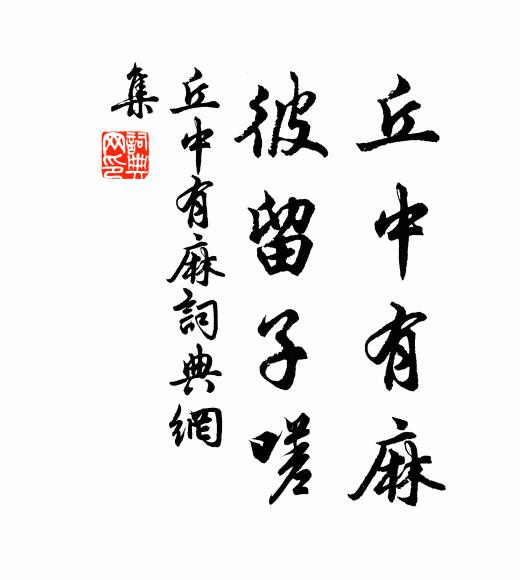 丘中有麻
彼留子嗟
丘中有麻詞典網
集
詞典
网印